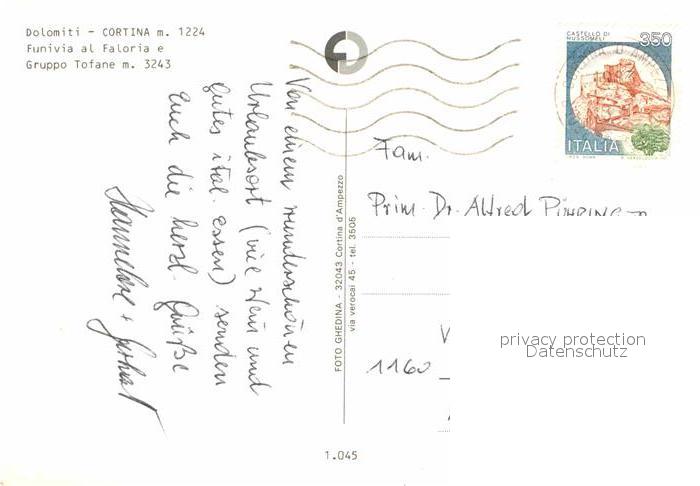 Dolomiti - CORTINA m. 1224
Funivia al Faloria e
Gruppo Tofane m. 3243
Von einem wunderschönen
Urlaubsort (viel Wein und
gutes ital. Essen) senden
Euch die herzl. Grüße
Hannelore + Gerhard
FOTO GHEDINA - 32043 Cortina d'Ampezzo
via verocai 45 - tel. 3505
CASTELLO DI
MUSSOMELI
350
ITALIA
Fam.
Prim. Dr. Alfred PÜHRINGER
V
1160
privacy protection
Datenschutz
1.045